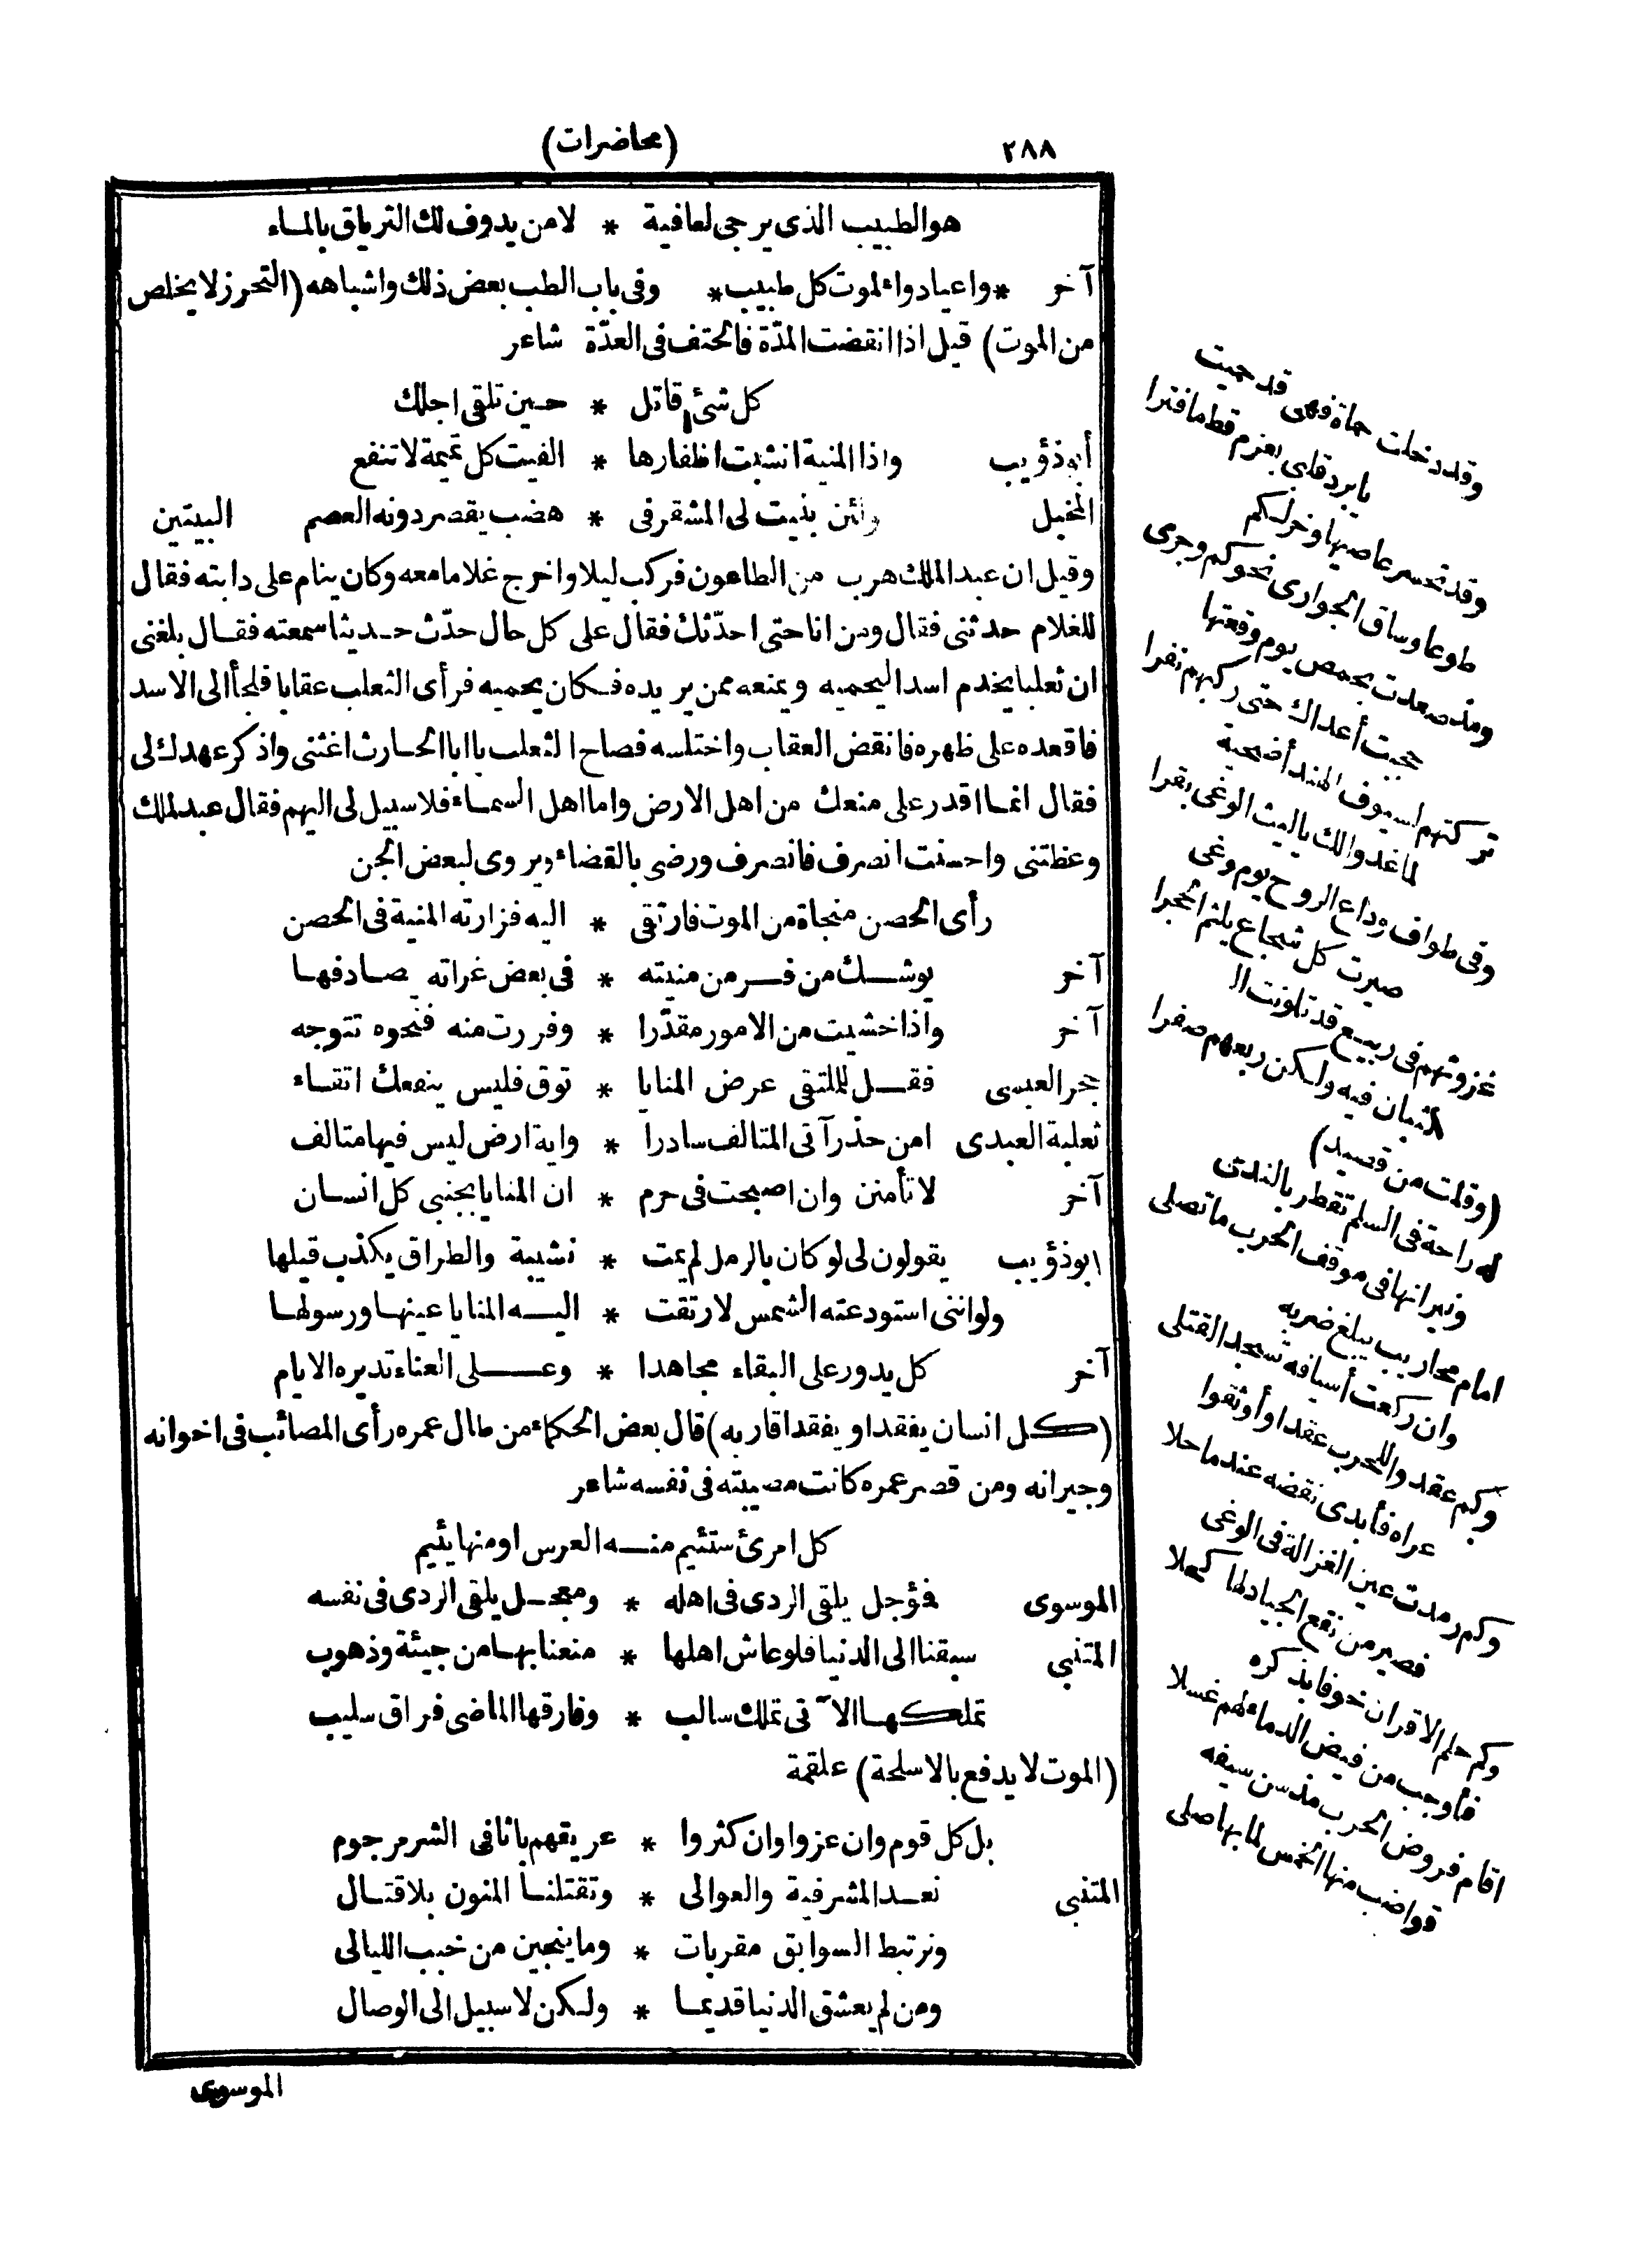 ٢٨٨
(محاضرات)
هو الطبيب الذى يرجى لعافية * لا من يدوف لك الترياق بالماء
آخر * واعيا دواء الموت كل طبيب * وفى باب الطب بعض ذلك واشباهه (التحرز لا يخلص
من الموت) قيل اذا انقضت المدّة فالحتف فى العدّة شاعر
كل شئ قاتل * حين تلقى اجلك
أبوذؤيب واذا المنية انشبت اظفارها * الفيت كل تميمة لا تنفع
المخبل ولئن بنيت لى المشقر فى * هضب يقصر دونه العصم البيتين
وقيل ان عبد الملك هرب من الطاعون فركب ليلا واخرج غلاما معه وكان ينام على دابته فقال
للغلام حدثنى فقال ومن انا حتى احدّثك فقال على كل حال حدّث حديثا سمعته فقال بلغنى
ان ثعلبا يخدم اسدا ليحميه ويمنعه ممن يريده فكان يحميه فرأى الثعلب عقابا فلجأ الى الاسد
فاقعده على ظهره فانقض العقاب واختلسه فصاح الثعلب يا ابا الحارث اغثنى واذكر عهدك لى
فقال انما اقدر على منعك من اهل الارض واما اهل السماء فلا سبيل لى اليهم فقال عبد الملك
وعظتنى واحسنت انصرف فانصرف ورضى بالقضاء ويروى لبعض الجن
رأى الحصن منجاة من الموت فارتقى * اليه فزارته المنية فى الحصن
آخر يوشك من فر من منيته * فى بعض غراته يصادفها
آخر واذا خشيت من الامور مقدّرا * وفررت منه فنحوه تتوجه
حجر العبسى فقل للمتقى عرض المنايا * توق فليس ينفعك اتقاء
ثعلبة العبدى امن حذر آتى المتالف سادرا * واية ارض ليس فيها متالف
آخر لا تأمنن وان اصبحت فى حرم * ان المنايا بجنبى كل انسان
ابوذؤيب يقولون لى لو كان بالرمل لم يمت * نشيبة والطراق يكذب قيلها
ولو اننى استودعته الشمس لارتقت * اليه المنايا عينها ورسولها
آخر كل يدور على البقاء مجاهدا * وعلى العناء تديره الايام
(كل انسان يفقد او يفقد اقاربه) قال بعض الحكماء من طال عمره رأى المصائب فى اخوانه
وجيرانه ومن قصر عمره كانت مصيبته فى نفسه شاعر
كل امرئ ستئيم منه العرس او منها يئيم
الموسوى فمؤجل يلقى الردى فى اهله * ومعجل يلقى الردى فى نفسه
المتنبى سبقنا الى الدنيا فلو عاش اهلها * منعنا بها من جيئة وذهوب
تملكها الآتى تملك سالب * وفارقها الماضى فراق سليب
(الموت لا يدفع بالاسلحة) علقمة
بل كل قوم وان عزوا وان كثروا * عريفهم باثافى الشر مرجوم
المتنبى نعد المشرفية والعوالى * وتقتلنا المنون بلا قتال
ونرتبط السوابق مقربات * وما ينجين من خبب الليالى
ومن لم يعشق الدنيا قديما * ولكن لا سبيل الى الوصال
الموسوى
وقد دخلت حماة فهى قد حميت
يا برد قلبى بعزم قط ما فترا
وقد تحسر عاصيها وخر لكم
طوعا وساق الجوارى نحوكم وجرى
ومذ صعدت بحمص يوم وقعتها
حجبت أعداك حتى ركبهم نفرا
تركتهم لسيوف الهند أضحية
لما غدوا لك يا ليث الوغى بقرا
وفى طواف وداع الروح يوم وغى
صيرت كل شجاع يلثم الحجرا
غزوتهم فى ربيع قد تلونت ال
اثبان فيه ولكن ربعهم صفرا
(وقلت من قصيد)
له راحة فى السلم تقطر بالندى
ونيرانها فى موقف الحرب ما تصلى
امام محاريب يبلغ ضربه
وان ركعت أسيافه تسجد القتلى
وكم عقدوا للحرب عقدا وأوثقوا
عراه فأبدى نقضه عند ما حلا
وكم رمدت عين الغزالة فى الوغى
فصير من نقع الجياد لها كحلا
وكم حلم الاقران خوفا بذكره
فأوجب من فيض الدماء لهم غسلا
اقام فروض الحرب مذ سن سيفه
قواضب منها الخمس لما بها صلى